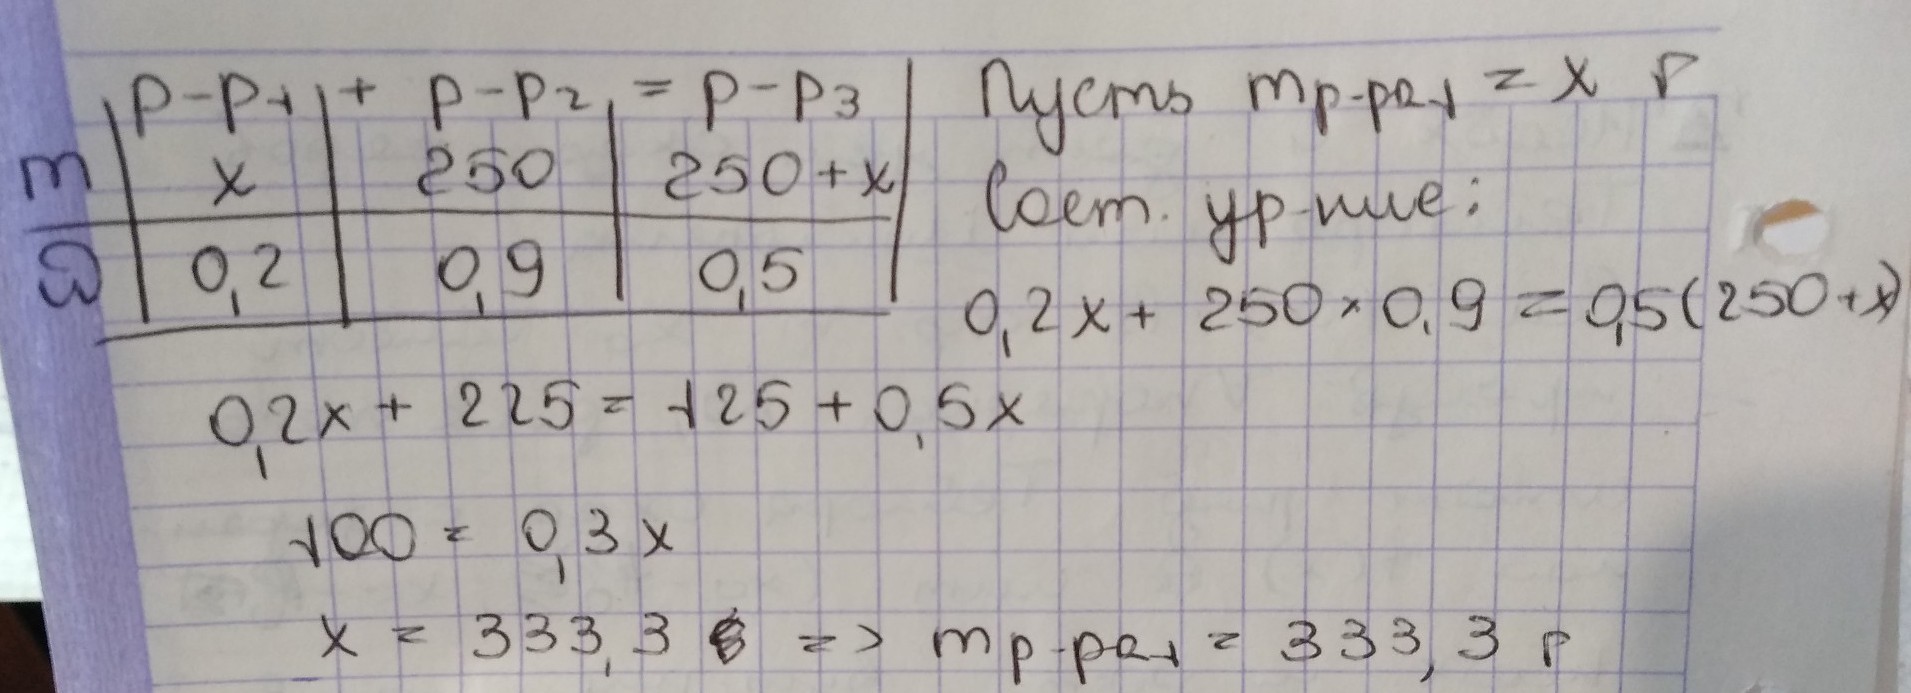 р-р1 + р-р2 = р-р3
m x 250 250+x
ω 0,2 0,9 0,5
Пусть mр-ра1 = x г
Сост. ур-ние:
0,2x + 250 × 0,9 = 0,5(250+x)
0,2x + 225 = 125 + 0,5x
100 = 0,3x
x = 333,3 => mр-ра1 = 333,3 г